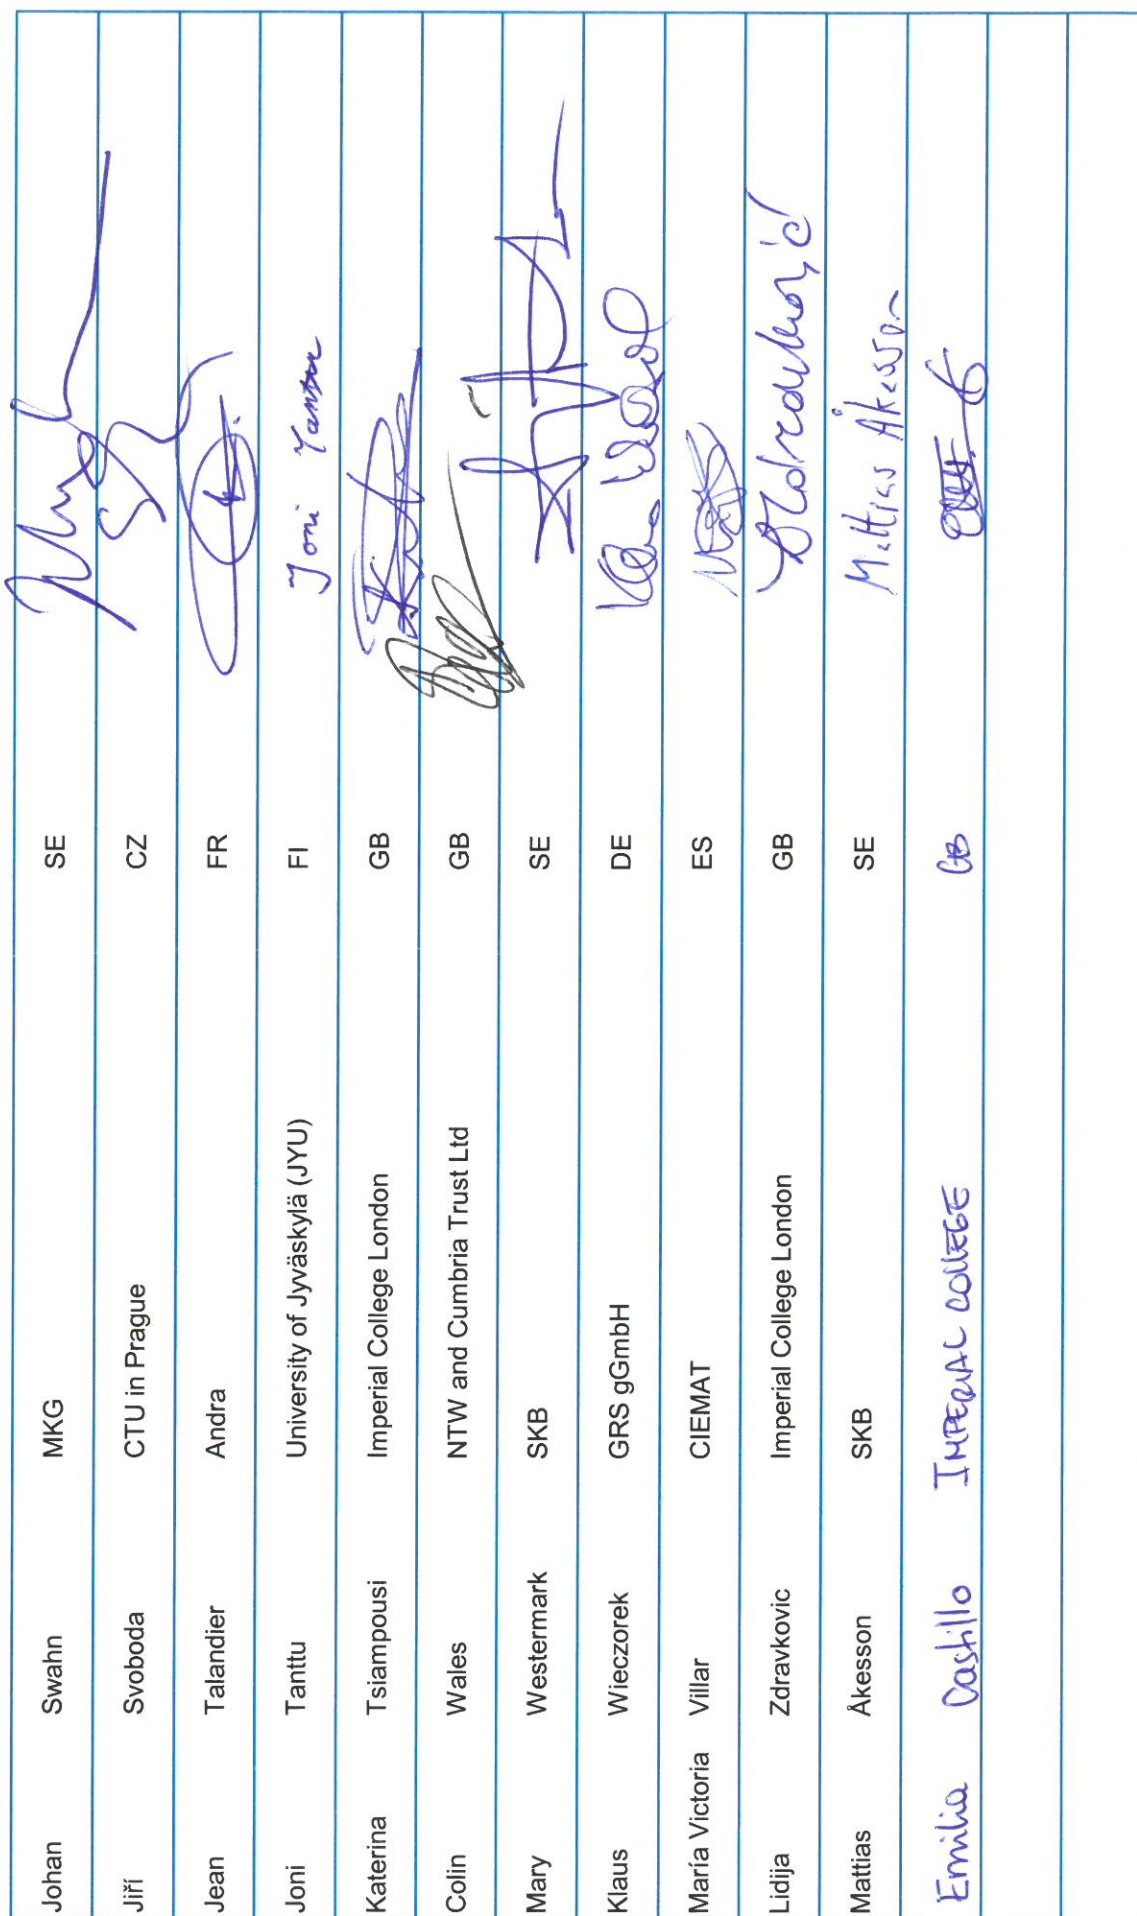 Johan Swahn MKG SE
Jiří Svoboda CTU in Prague CZ
Jean Talandier Andra FR
Joni Tanttu University of Jyväskylä (JYU) FI Joni Tanttu
Katerina Tsiampousi Imperial College London GB
Colin Wales NTW and Cumbria Trust Ltd GB
Mary Westermark SKB SE
Klaus Wieczorek GRS gGmbH DE
María Victoria Villar CIEMAT ES
Lidija Zdravkovic Imperial College London GB Zdravković
Mattias Åkesson SKB SE Mattias Åkesson
Emilia Castillo IMPERIAL COLLEGE GB